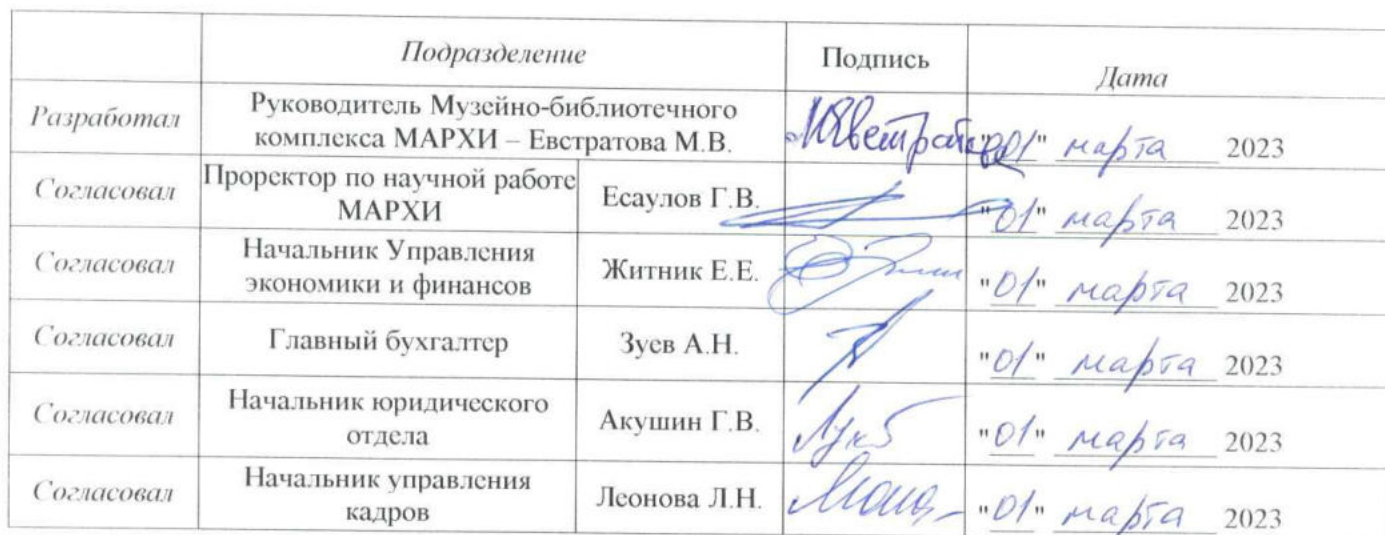 Подразделение Подпись Дата
Разработал Руководитель Музейно-библиотечного
комплекса МАРХИ – Евстратова М.В. "01" марта 2023
Согласовал Проректор по научной работе
МАРХИ Есаулов Г.В. "01" марта 2023
Согласовал Начальник Управления
экономики и финансов Житник Е.Е. "01" марта 2023
Согласовал Главный бухгалтер Зуев А.Н. "01" марта 2023
Согласовал Начальник юридического
отдела Акушин Г.В. "01" марта 2023
Согласовал Начальник управления
кадров Леонова Л.Н. "01" марта 2023